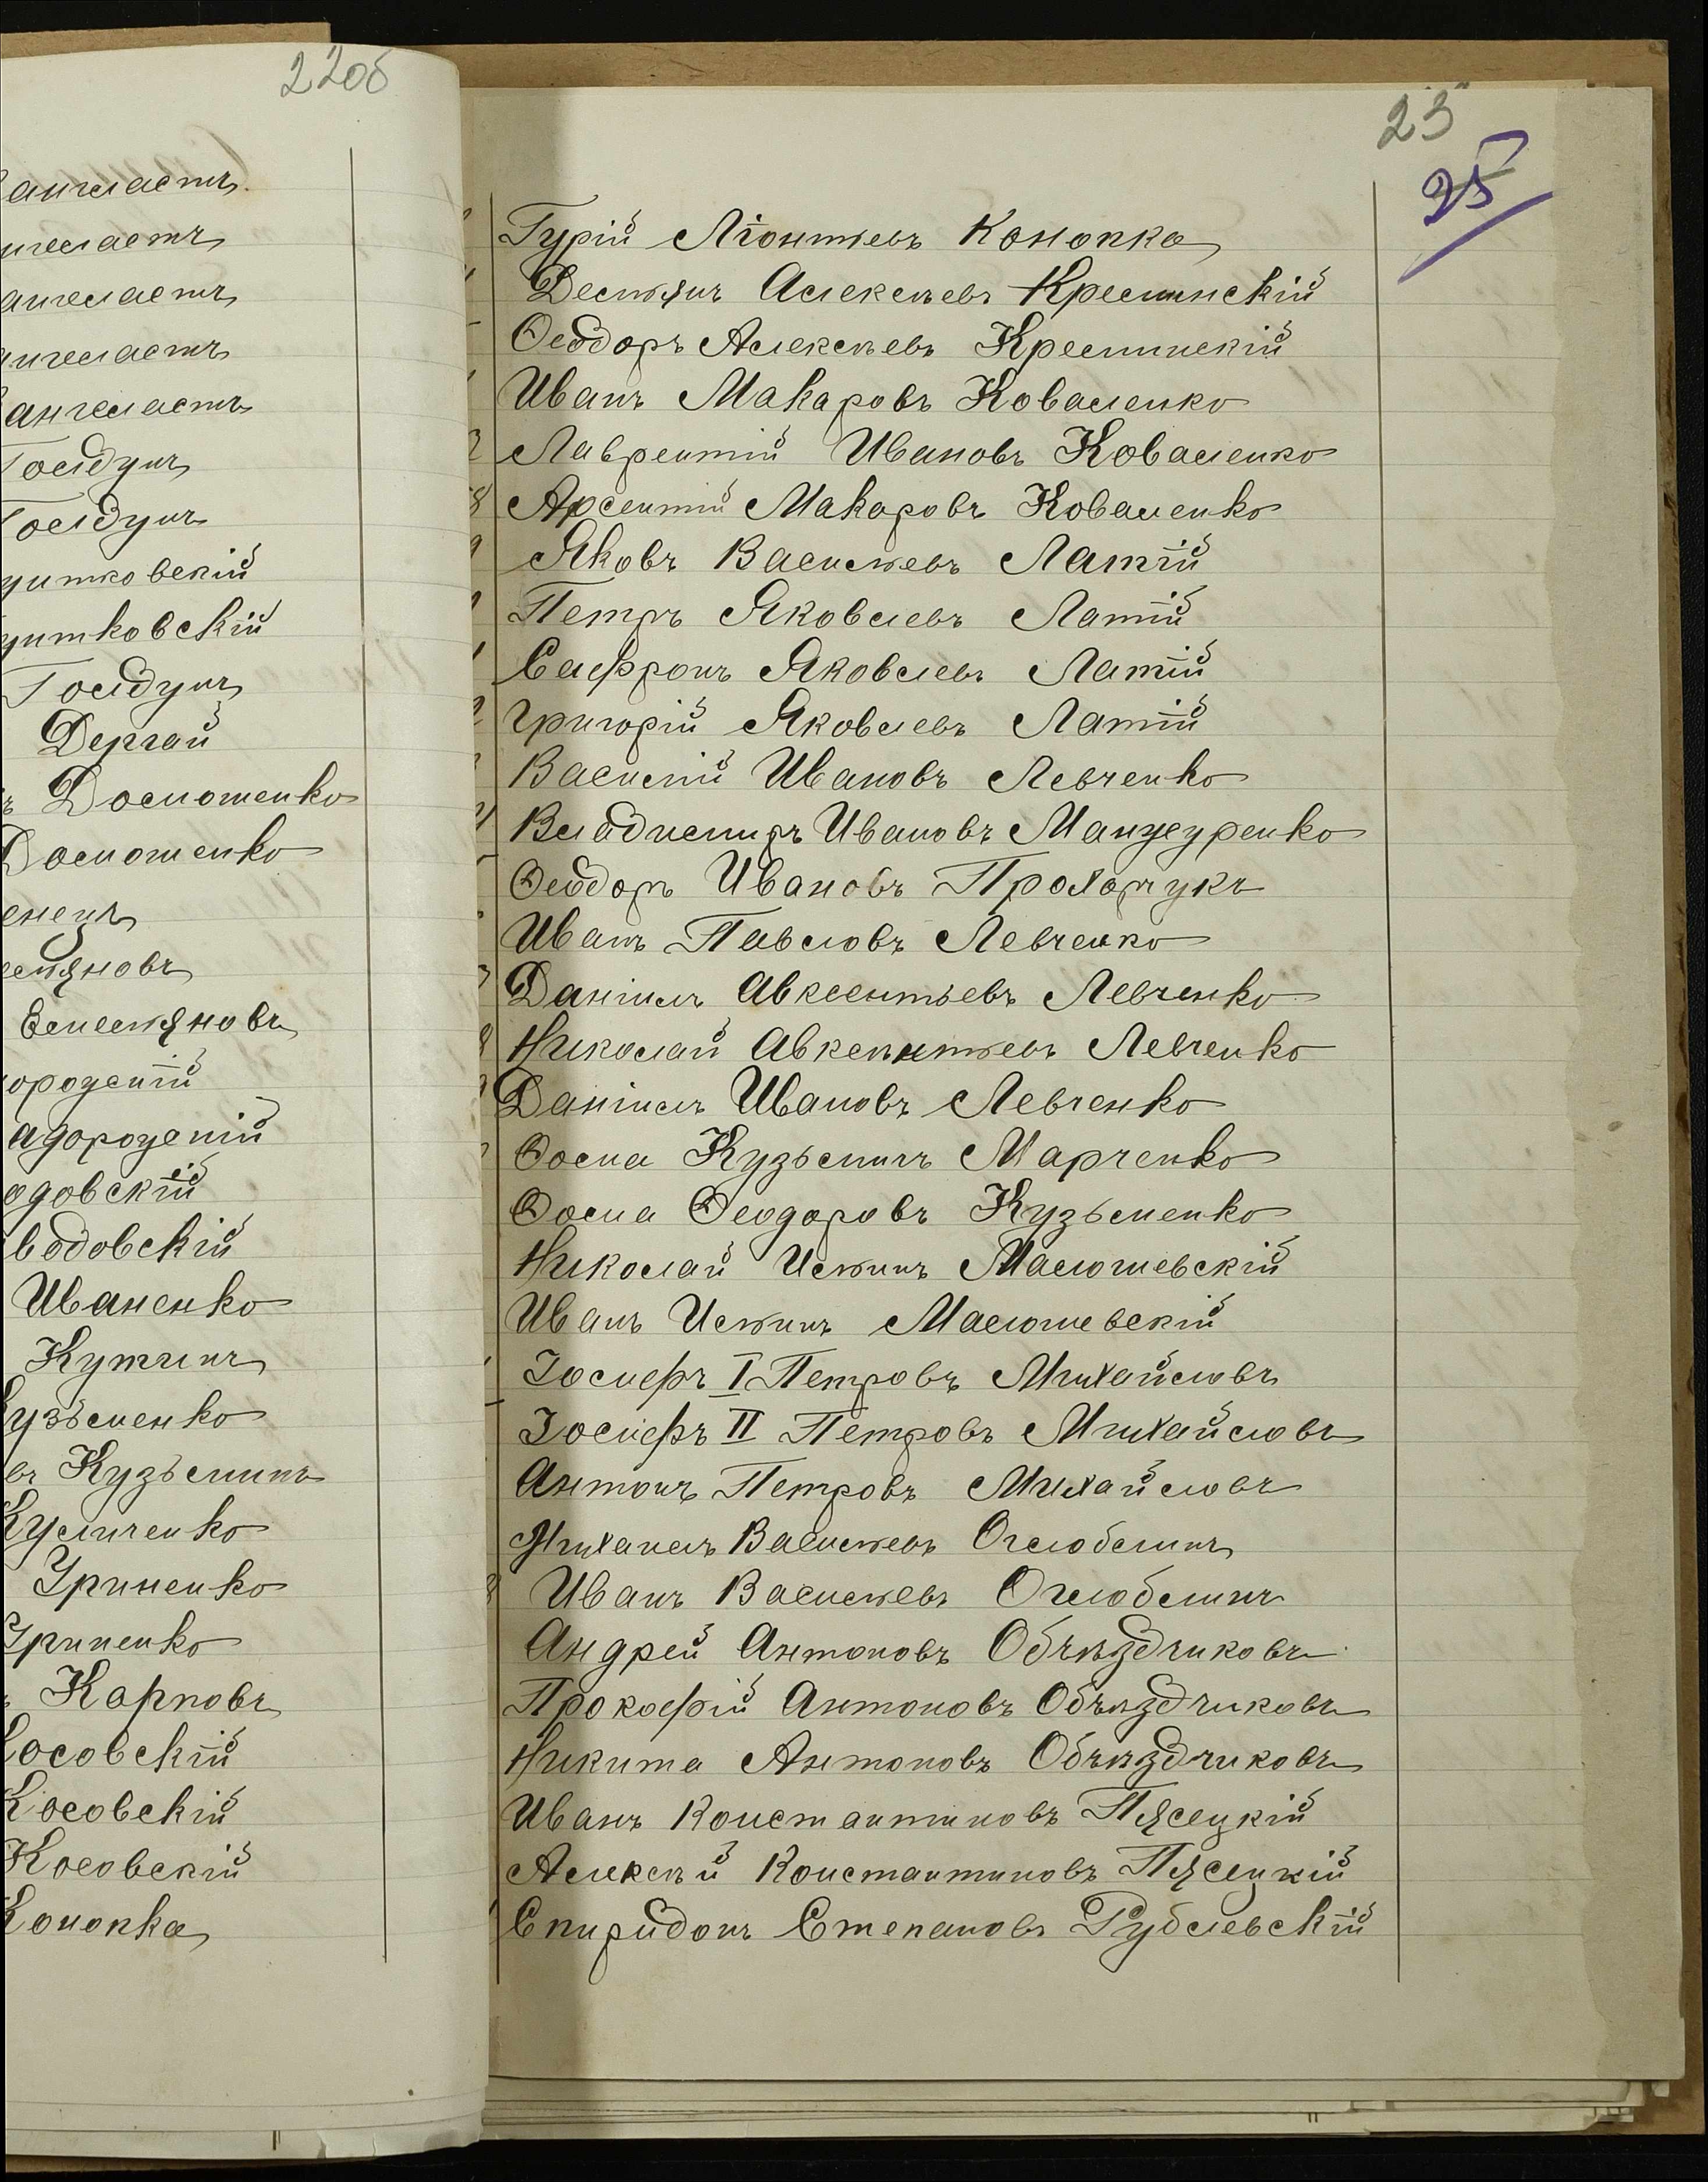 22об
ангеластъ
нгеластъ
ангеластъ
нгеластъ
ангеластъ
Голдунъ
Голдунъ
утковскій
утковскій
Голдунъ
Дергай
ъ Доломенко
Доломенко
енецъ
емѣяновъ
Емельяновъ
ородній
адородній
одовскій
водовскій
Иваненко
Кутлинъ
Кузьменко
въ Кузьминъ
Куличенко
Уриненко
Уриненко
Карповъ
Косовскій
Косовскій
Косовскій
Конопка
23
25
Гурій Ліонтьевъ Конопка
Демьянъ Алексѣевъ Крелинскій
Ѳеодоръ Алексѣевъ Крелинскій
Иванъ Макаровъ Коваленко
Лаврентій Ивановъ Коваленко
Арсентій Макаровъ Коваленко
Яковъ Васильевъ Латій
Петръ Яковлевъ Латій
Сафронъ Яковлевъ Латій
Григорій Яковлевъ Латій
Василій Ивановъ Левченко
Владимиръ Ивановъ Манжуренко
Ѳеодоръ Ивановъ Прохорчукъ
Иванъ Павловъ Левченко
Даніилъ Авксентьевъ Левченко
Николай Авксентьевъ Левченко
Даніилъ Ивановъ Левченко
Ѳома Кузьминъ Марченко
Ѳома Ѳеодоровъ Кузьменко
Николай Ильинъ Малюшевскій
Иванъ Ильинъ Малюшевскій
Іосифъ I Петровъ Михайловъ
Іосифъ II Петровъ Михайловъ
Антонъ Петровъ Михайловъ
Михаилъ Васильевъ Оглоблинъ
Иванъ Васильевъ Оглоблинъ
Андрей Антоновъ Объѣздчиковъ
Прокофій Антоновъ Объѣздчиковъ
Никита Антоновъ Объѣздчиковъ
Иванъ Константиновъ Пясецкій
Алексѣй Константиновъ Пясецкій
Спиридонъ Степановъ Рублевскій